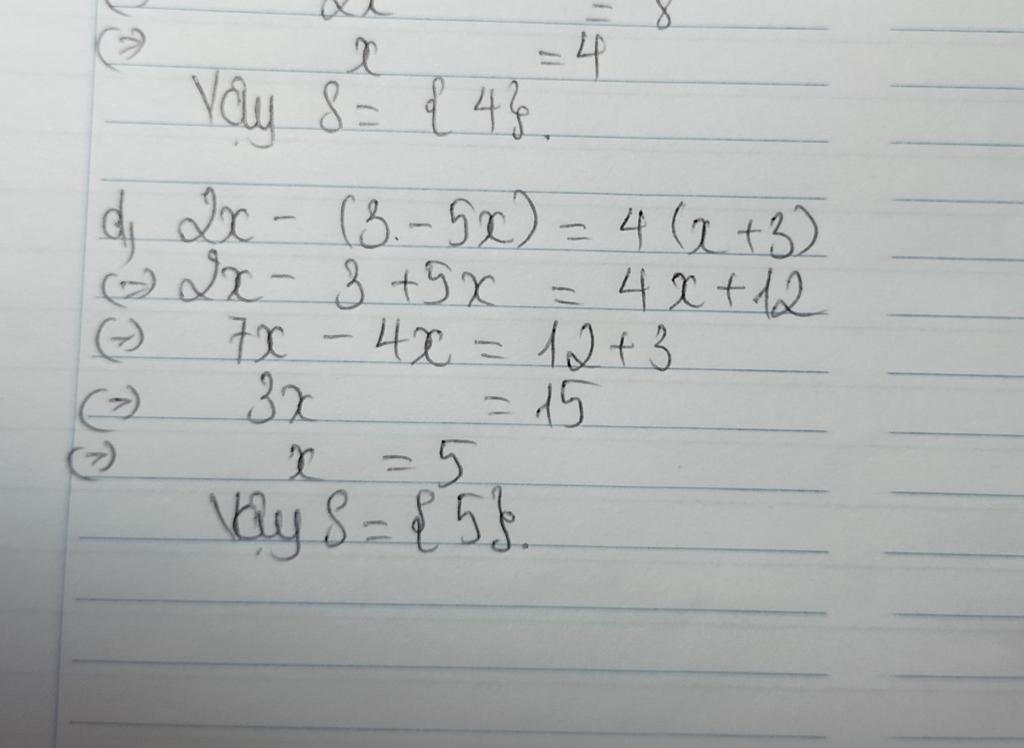 2x = 8
(=) x = 4
Vậy S = {4}.
d, 2x - (3 - 5x) = 4(x + 3)
(=) 2x - 3 + 5x = 4x + 12
(=) 7x - 4x = 12 + 3
(=) 3x = 15
(=) x = 5
Vậy S = {5}.